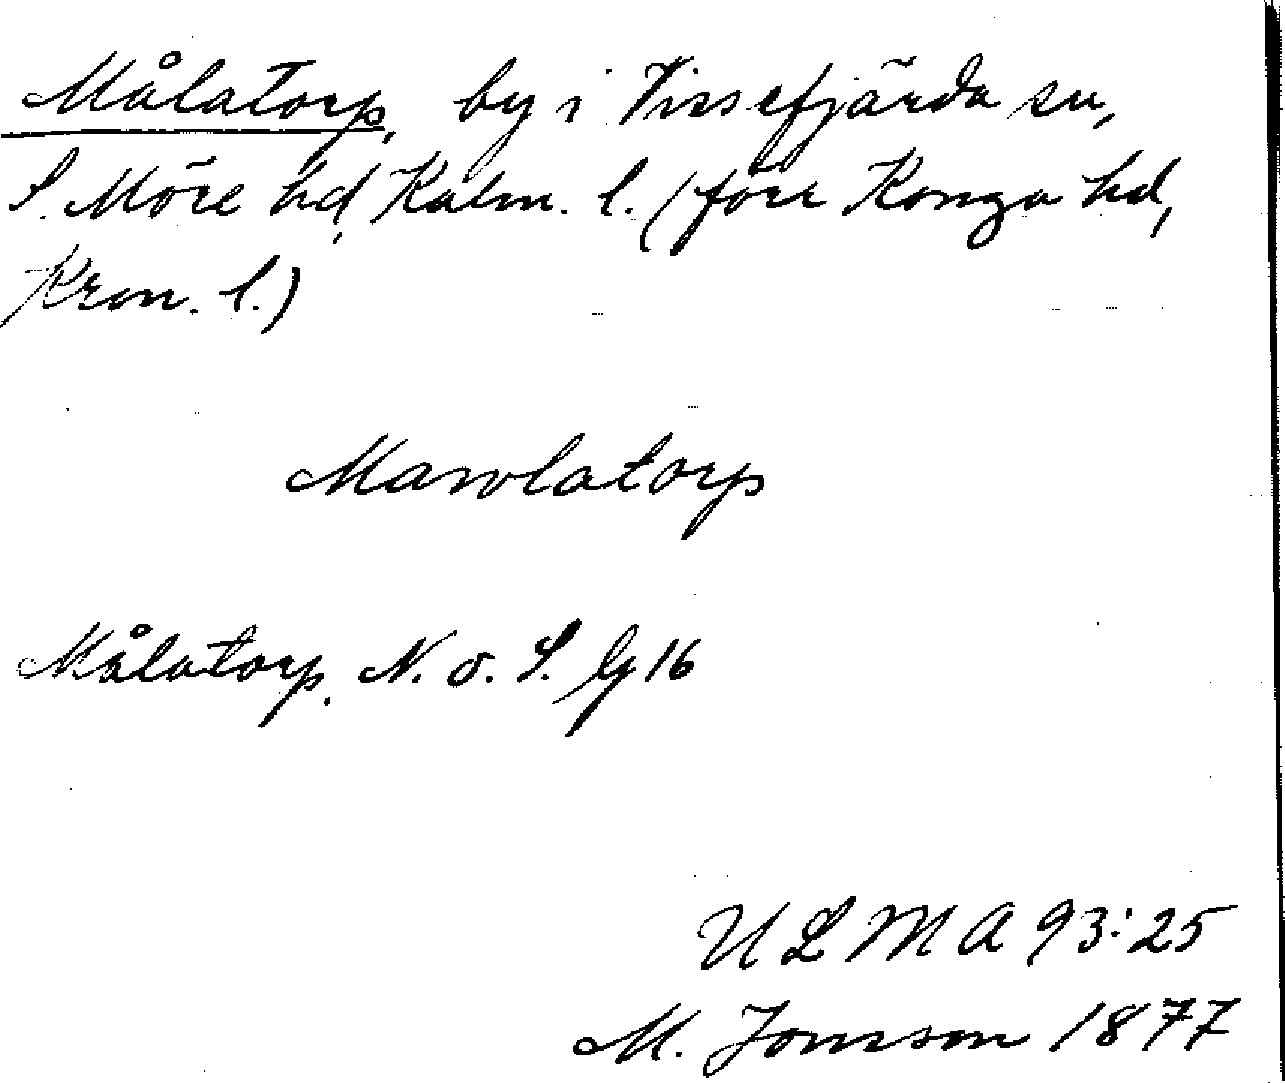 Målatorp, by i Vissefjärda sn,
S. Möre hd, Kalm. l. (förr Konga hd,
Kron. l.)
Mawlatorp
Målatorp, N. o. S. by 16
ULMA 93:25
M. Jonsson 1877